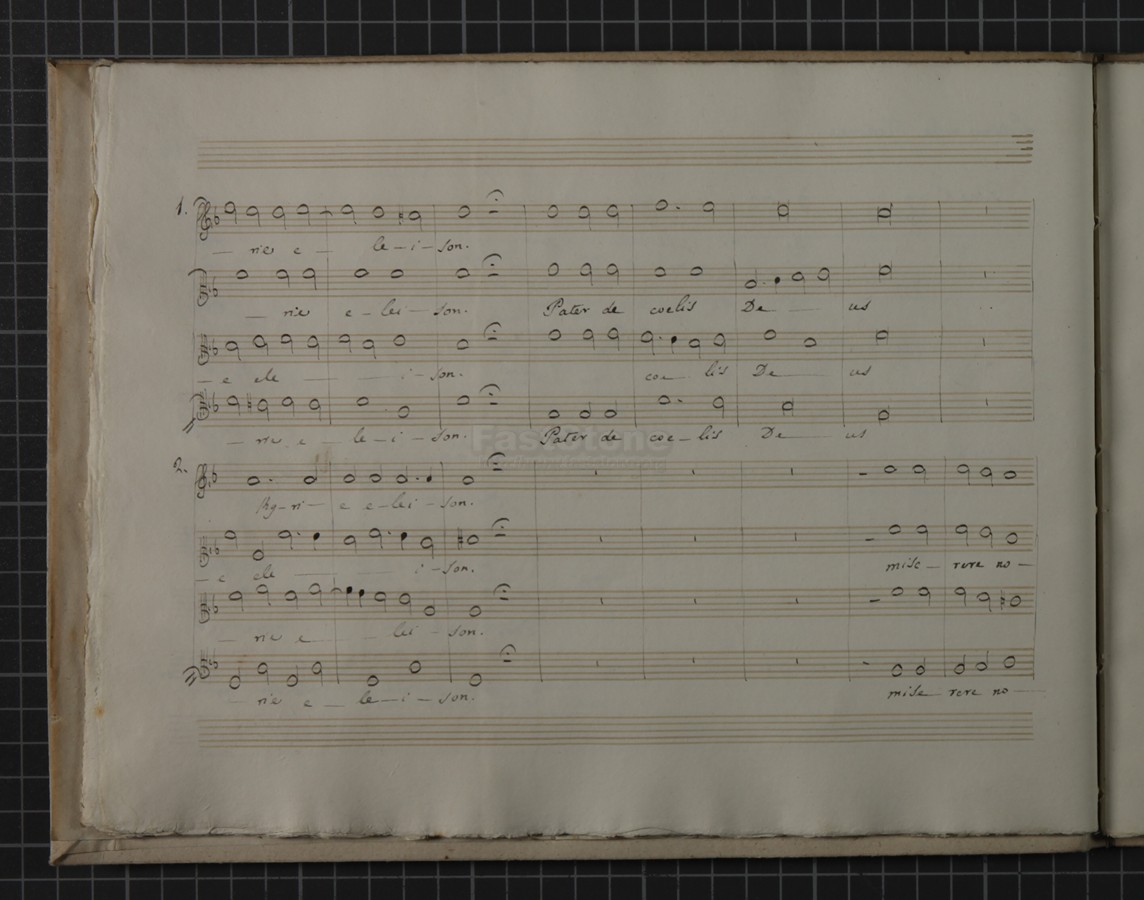 1.
— rie e — le — i — son.
— rie e — lei — son. Pater de coelis De — us
— e ele — i — son. coe — lis De — us
— rie e — le — i — son. Pater de coe — lis De — us
FastStone
2.
Ky — ri — e e — lei — son.
— e ele — i — son. mise — rere no —
— rie e — lei — son.
— rie e — le — i — son. mise — rere no —